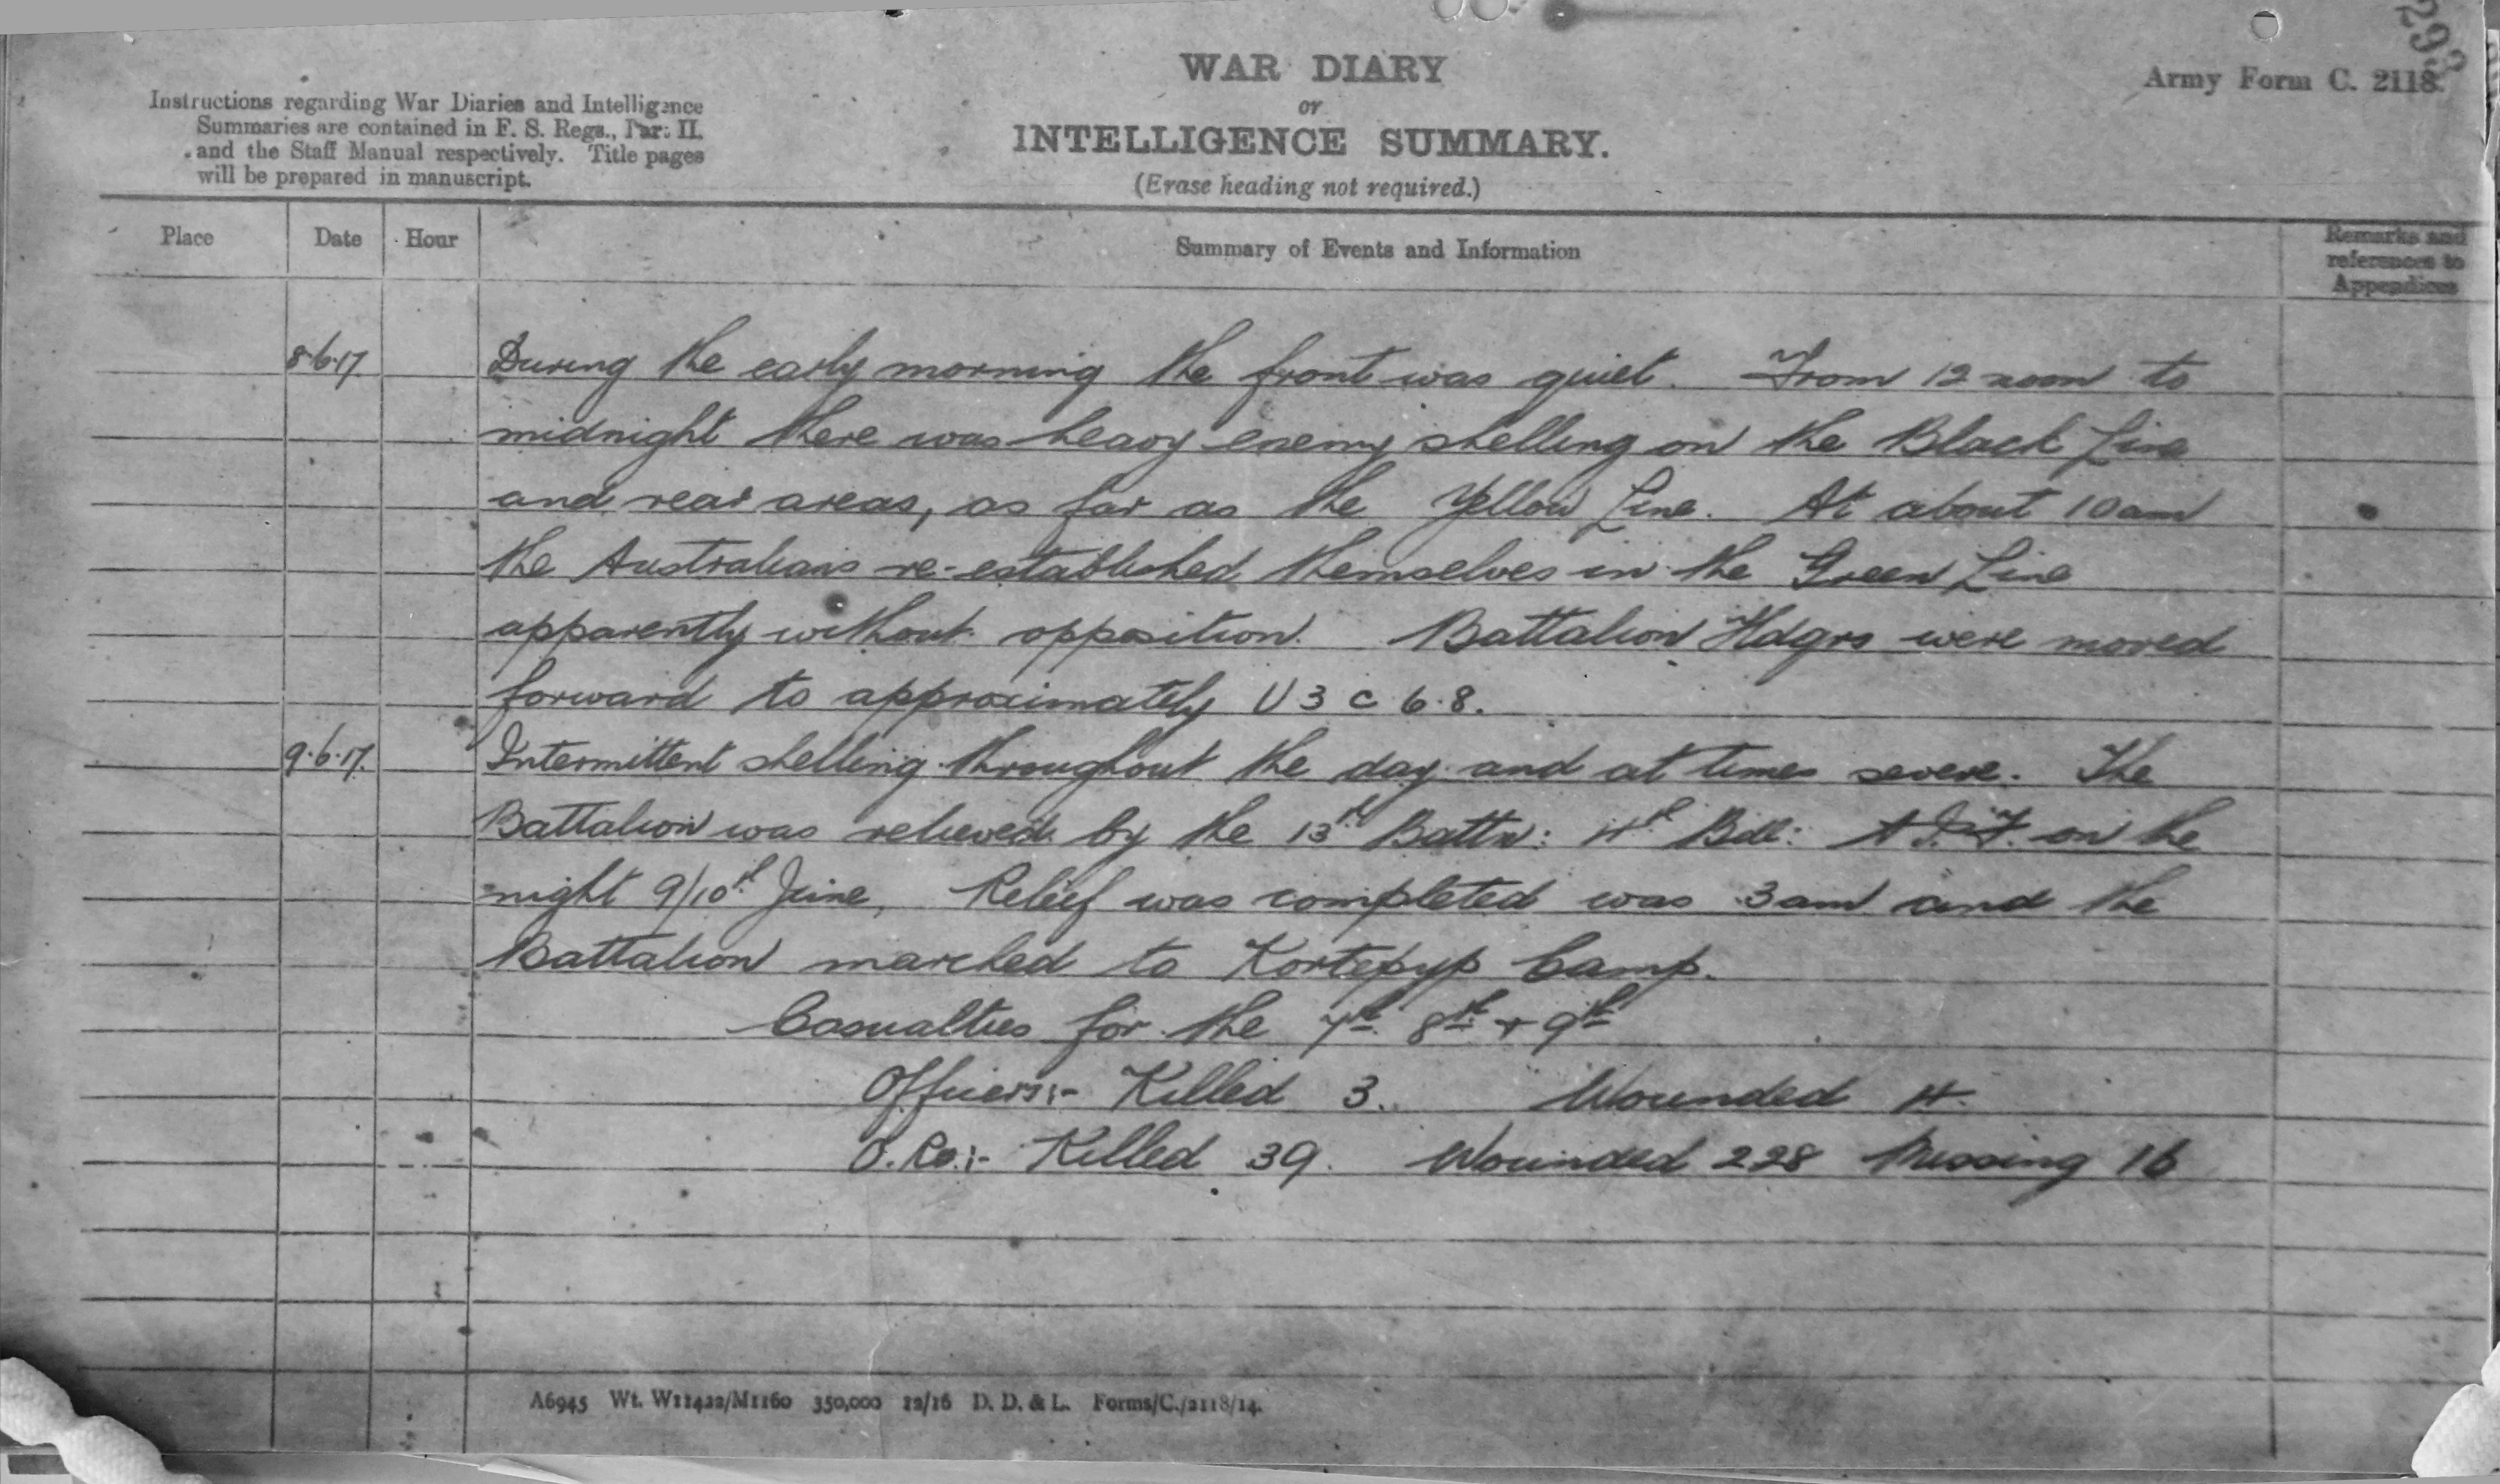 WAR DIARY
or
INTELLIGENCE SUMMARY.
(Erase heading not required.)
Army Form C. 2118.
Instructions regarding War Diaries and Intelligence
Summaries are contained in F. S. Regs., Part II.
and the Staff Manual respectively. Title pages
will be prepared in manuscript.
Place Date Hour Summary of Events and Information Remarks and references to Appendices
8.6.17. During the early morning the front was quiet. From 12 noon to
midnight there was heavy enemy shelling on the Black Line
and rear areas, as far as the Yellow Line. At about 10 am
the Australians re-established themselves in the Green Line
apparently without opposition. Battalion Hdqrs were moved
forward to approximately U 3 c 6.8.
9.6.17. Intermittent shelling throughout the day and at times severe. The
Battalion was relieved by the 13th Battn: 4th A.I.F. on the
night 9/10th June, Relief was completed was 3 am and the
Battalion marched to Kortepyp Camp.
Casualties for the 7th 8th + 9th
Officers:- Killed 3. Wounded 4.
O.Rs:- Killed 39. Wounded 228 Missing 16
A6945 Wt. W11422/M1160 350,000 12/16 D. D. & L. Forms/C./2118/14.